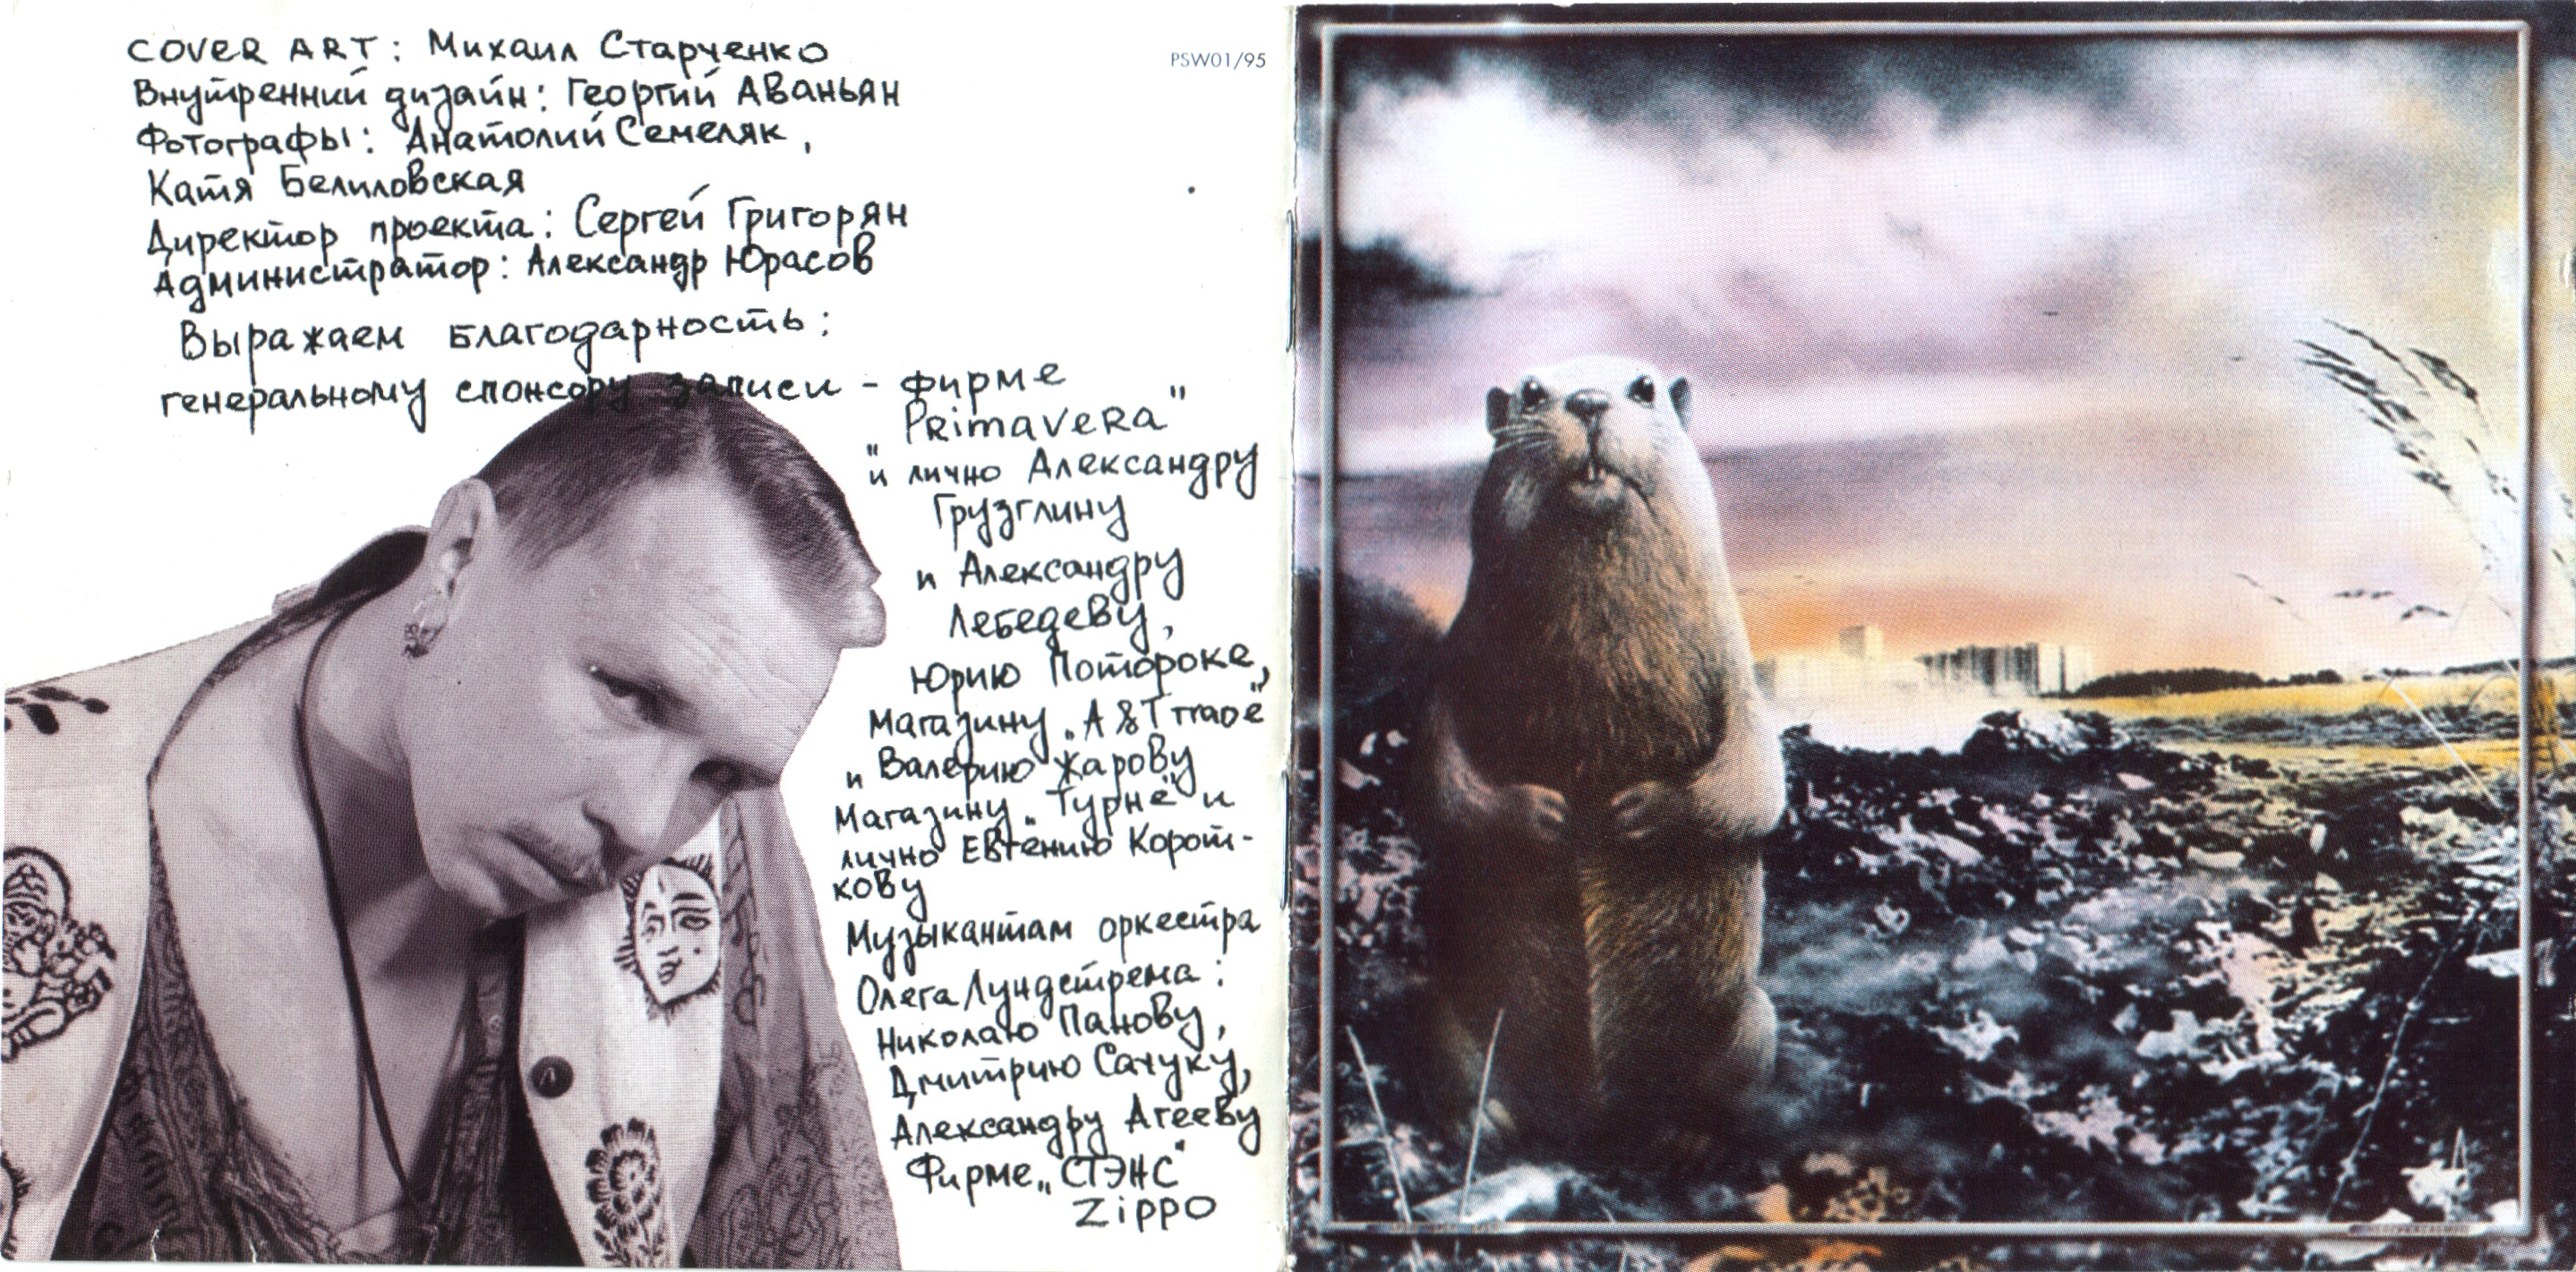 COVER ART: Михаил Старченко
Внутренний дизайн: Георгий Аваньян
Фотографы: Анатолий Семеляк,
Катя Белиловская
Директор проекта: Сергей Григорян
Администратор: Александр Юрасов
Выражаем благодарность:
генеральному спонсору записи - фирме
"Primavera"
и лично Александру
Грузглину
и Александру
Лебедеву,
Юрию Потороке,
Магазину „A&T trade"
и Валерию Жарову
Магазину „Турнё" и
лично Евгению Корот-
кову
Музыкантам оркестра
Олега Лундстрема:
Николаю Панову,
Дмитрию Сачуку,
Александру Агееву
Фирме „СТЭНС"
Zippo
PSW01/95